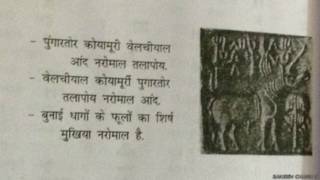 - पुंगारतोर कोयामूरी वेलचीयाल
आंद नरोमाल तलापोय.
- वेलचीयाल कोयामूर्री पुगारतोर
तलापोय नरोमाल आंद.
- बुनाई धागों के फूलों का शिर्ष
मुखिया नरोमाल है.